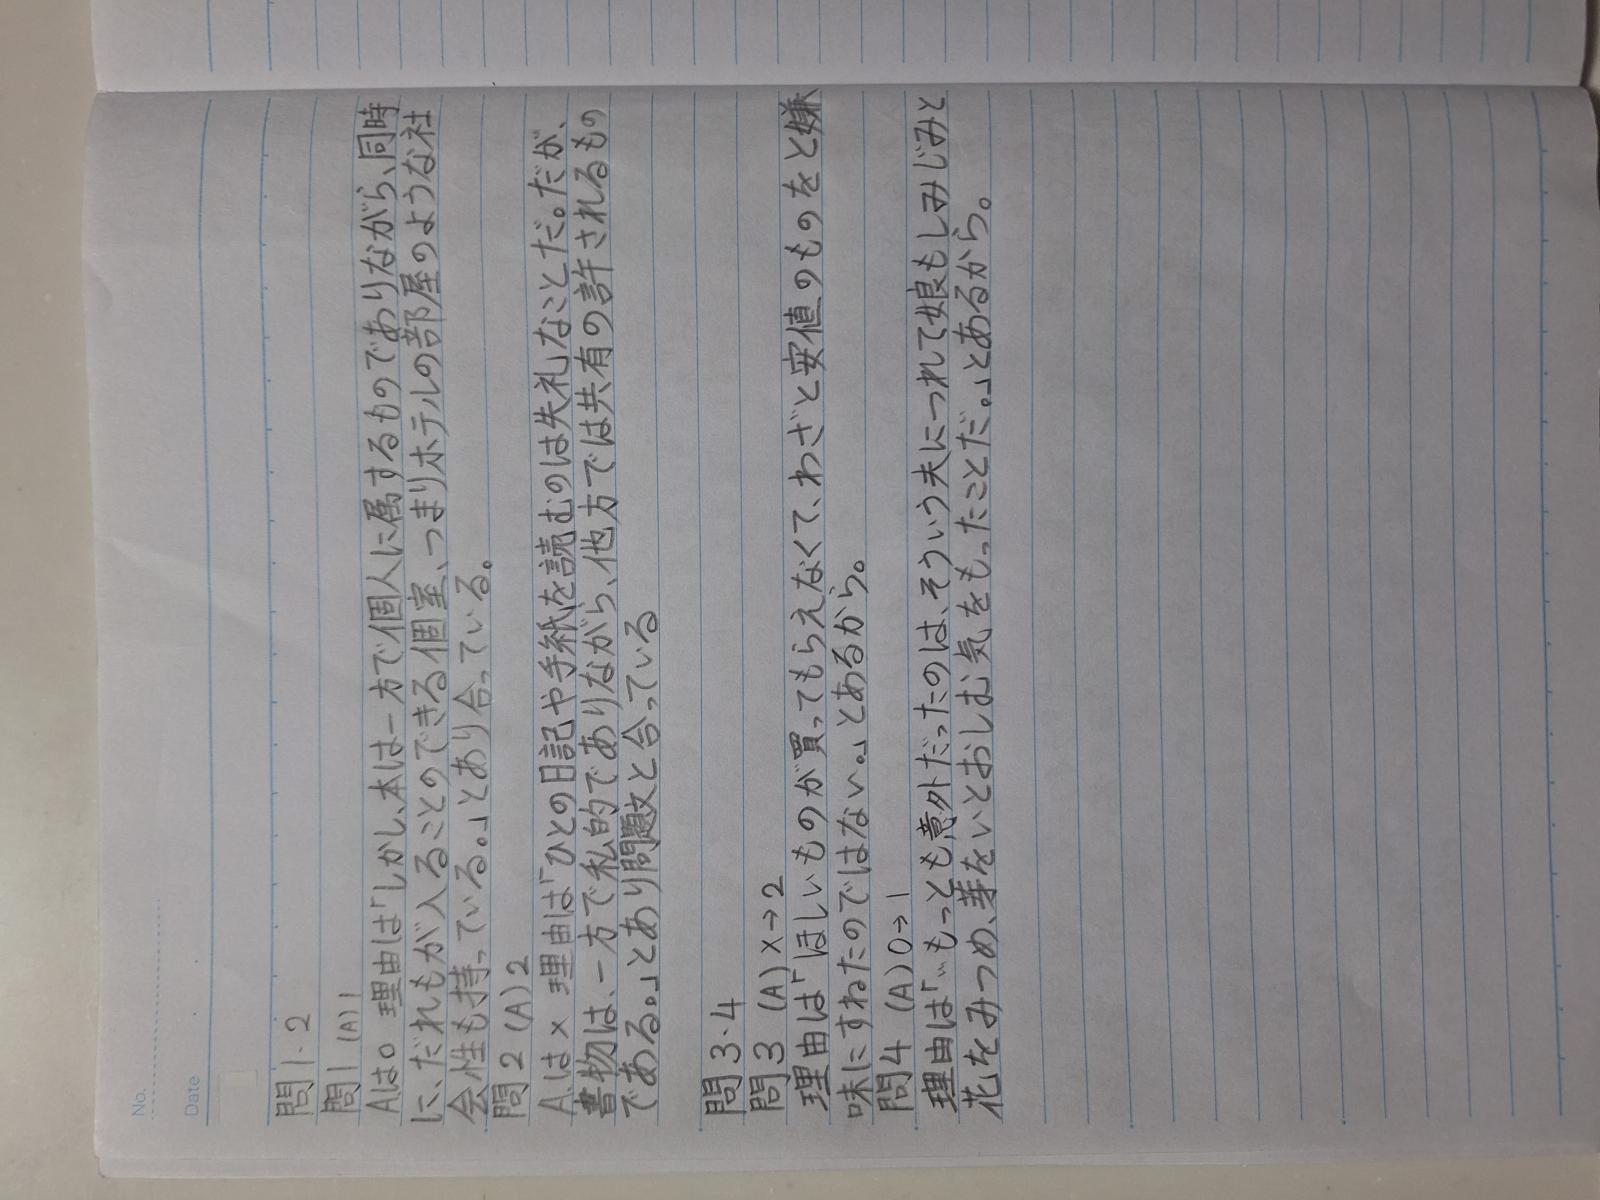 No.
Date
問1・2
問1 (A) 1
Aは○ 理由は「しかし、本は一方で個人に属するものでありながら、同時
に、だれもが入ることのできる個室、つまりホテルの部屋のような社
会性も持っている。」とあり合っている。
問2 (A) 2
Aは× 理由は「ひとの日記や手紙を読むのは失礼なことだ。だが、
書物は、一方で私的でありながら、他方では共有の許されるもの
である。」とあり問題文と合っている
問3・4
問3 (A) ×→2
理由は「ほしいものが買ってもらえなくて、わざと安値のものをと嫌
味にすねたのではない。」とあるから。
問4 (A) ○→1
理由は「…もっとも意外だったのは、そういう夫につれて娘もしみじみと
花をみつめ、芽をいとおしむ気をもったことだ。」とあるから。